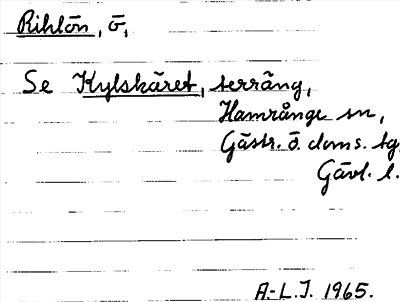 Rihlön, ö,
Se Kylskäret, terräng,
Hamrånge sn,
Gästr. ö. doms. tg,
Gävl. l.
A.-L.J. 1965.